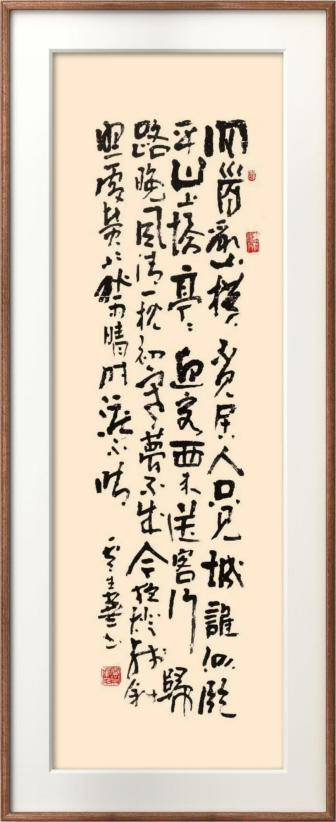 回首亂山橫不見居人只見城誰似臨
平山上塔亭〻迎客西来送客行歸
路晚風清一枕初寒夢不成今夜殘燈斜
照處熒〻秋雨晴時淚不晴